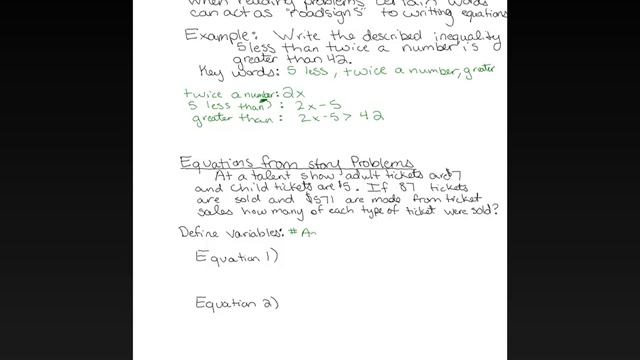 when reading problems certain words
can act as "roadsigns" to writing equations
Example: Write the described inequality
5 less than twice a number is
greater than 42.
Key words: 5 less, twice a number, greater
twice a number: 2x
5 less than: 2x-5
greater than: 2x-5 > 42
Equations from story Problems
At a talent show adult tickets are $7
and child tickets are $5. If 87 tickets
are sold and $571 are made from ticket
sales how many of each type of ticket were sold?
Define Variables: # A
Equation 1)
Equation 2)